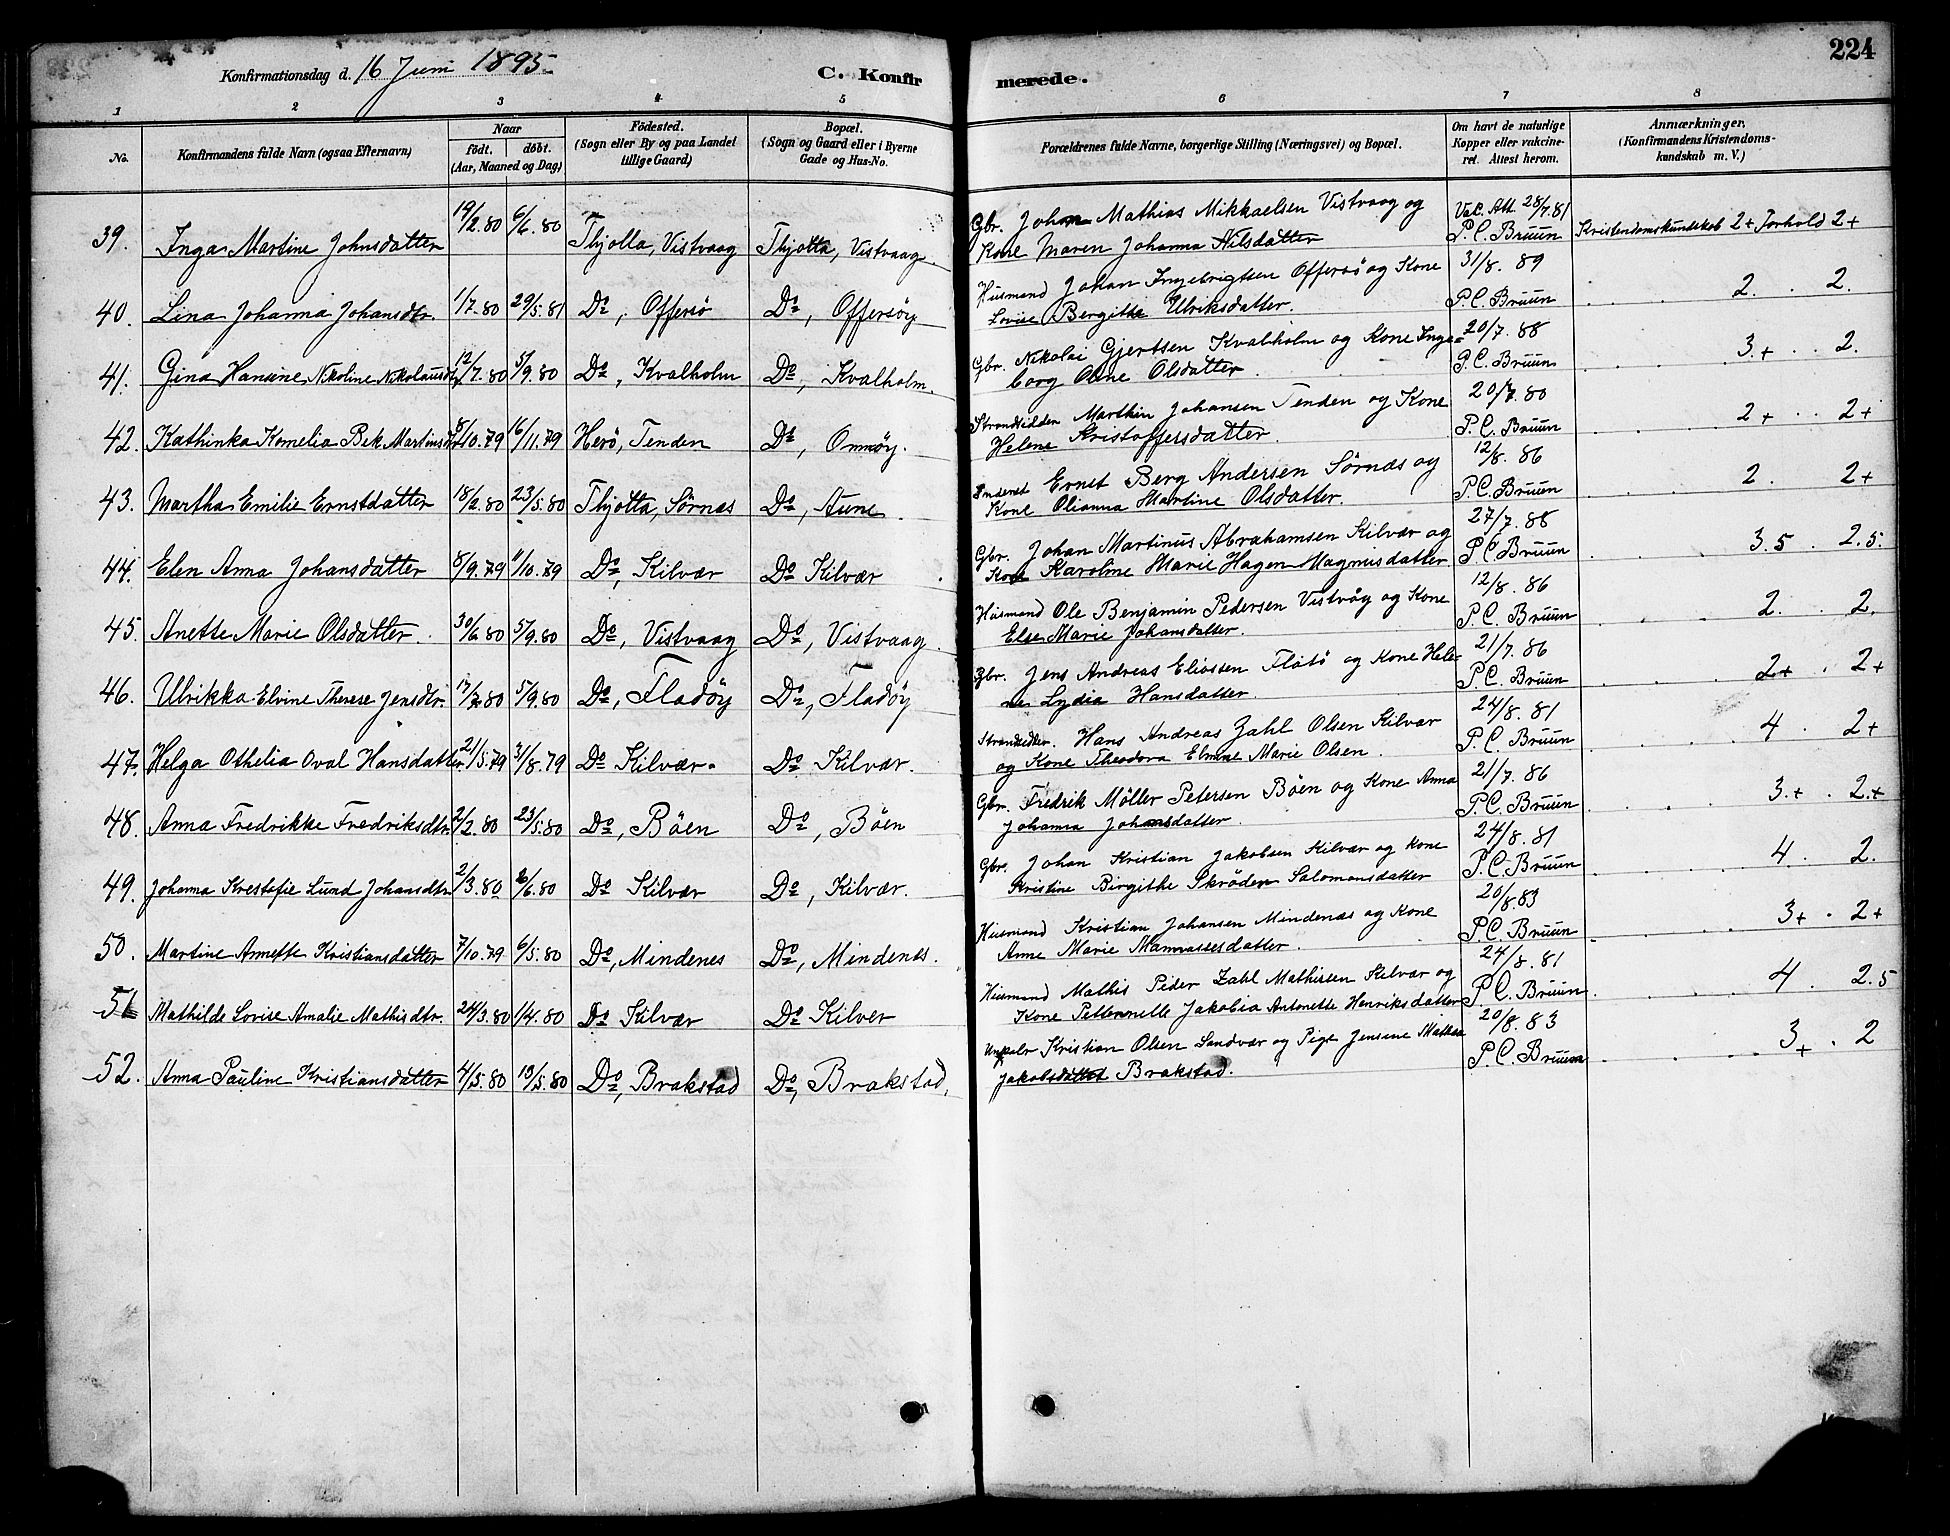 Konfirmationsdag d. 16 Juni 1895.
C. Konfirmerede.
224
1 2 3 4 5 6 7 8
No.
Konfirmandens fulde Navn (ogsaa Efternavn)
Naar
födt. döbt.
(Aar, Maaned og Dag)
Födested.
(Sogn eller By og paa Landet
tillige Gaard)
Bopæl.
(Sogn og Gaard eller i Byerne
Gade og Hus-No.
Forældrenes fulde Navne, borgerlige Stilling (Næringsvei) og Bopæl.
Om havt de naturlige
Kopper eller vakcine-
ret. Attest herom.
Anmærkninger,
(Konfirmandens Kristendoms-
kundskab m. V.)
39. Inga Martine Johnsdatter 19/2.80 6/6.80 Thjotta, Vistvaag Thjotta, Vistvaag.
Gbr. Johan Mathias Mikkaelsen Vistvaag og
Kone Maren Johanna Nilsdatter
Vac. Att. 28/7.81
P. C. Bruun
Kristendomskundskab 2+ Forhold 2+
40. Lina Johanna Johansdtr. 1/7.80 29/5.81 Do, Offersö Do, Offersöy
Husmand Johan Ingebrigtsen Offersö og Kone
Lovise Bergitte Ulriksdatter.
31/8. 89
P. C. Bruun
2. 2.
41. Gina Hansine Nikoline Nikolaisdtr 12/7.80 5/9.80 Do, Kvalholm Do, Kvalholm.
Gbr. Nikolai Gjertsen Kvalholm og Kone Inge-
borg Olsdatter.
20/7. 88
P. C. Bruun
3+ 2.
42. Kathinka Kornelia Bek Martinsdtr 8/10.79 16/11.79 Herö, Tenden Do, Omnöy.
Strandsidder Marthin Johansen Tenden og Kone
Helene Kristoffersdatter.
20/7. 80
P. C. Bruun
2+ 2+
43. Martha Emilie Ernstdatter 18/2.80 23/5.80 Thjotta, Sörnas Do, Aune
Inderst Ernst Berg Andersen Sörnæs og
Kone Olianna Martine Olsdatter.
12/8. 86
P. C. Bruun
2. 2+
44. Elen Anna Johansdatter 8/9.79 11/10.79 Do, Kilvær Do Kilvær
Gbr. Johan Martinus Abrahamsen Kilvær og
Kone Karoline Marie Hagen Magnusdatter
27/7. 88
P. C. Bruun
3.5 2.5.
45. Anette Marie Olsdatter 30/6.80 5/9.80 Do, Vistvaag Do, Vistvaag.
Husmand Ole Benjamin Pedersen Vistvåg og Kone
Else Marie Johansdatter.
12/8. 86
P. C. Bruun
2. 2.
46. Ulrikka Elvine Therese Jensdtr. 17/7.80 5/9.80 Do, Fladöy Do, Fladöy
Gbr. Jens Andreas Eliassen Flatö og Kone Hele-
ne Lydia Hansdatter
21/7. 86
P. C. Bruun
2+ 2+
47. Helga Othelia Oval Hansdatter 21/5.79 31/8.79 Do Kilvær. Do. Kilvær.
Strandsidder. Hans Andreas Zahl Olsen Kilvær
og Kone Theodora Elmine Marie Olsen.
24/8. 81
P. C. Bruun
4 2+
48. Anna Fredrikke Fredriksdtr 2/2.80 23/5.80 Do, Böen Do, Böen
Gbr. Fredrik Möller Petersen Böen og Kone Anna
Johanna Johansdatter.
21/7. 86
P. C. Bruun
3.+ 2.+
49. Johanna Krestefie Lund Johansdtr 2/3.80 6/6.80 Do Kilvær Do, Kilvær.
Gbr. Johan Kristian Jakobsen Kilvær og Kone
Kristine Birgithe Skröder Salomonsdatter
24/8. 81
P. C. Bruun
4. 2.
50. Martine Annette Kristiansdatter 7/10.79 6/5.80 Do, Mindenes Do, Mindenes.
Husmand Kristian Johansen Mindenæs og Kone
Anne Marie Mannassesdatter.
20/8.83
P. C. Bruun
3+ 2+
51 Mathilde Lovise Amalie Mathisdtr. 24/3.80 1/4.80 Do Kilvær Do Kilver
Husmand Mathis Peder Zahl Mathisen Kilvær og
Kone Petternelle Jakobia Antonette Henriksdatter
24/8. 81
P. C. Bruun
4. 2.5
52. Anna Pauline Kristiansdatter 4/5.80 13/5.80 Do, Brakstad Do, Brakstad,
Ungkalr Kristian Olsen Sandvær og Pige Jensine Mathea
Jakobsdatter Brakstad.
20/8. 83
P. C. Bruun
3+ 2